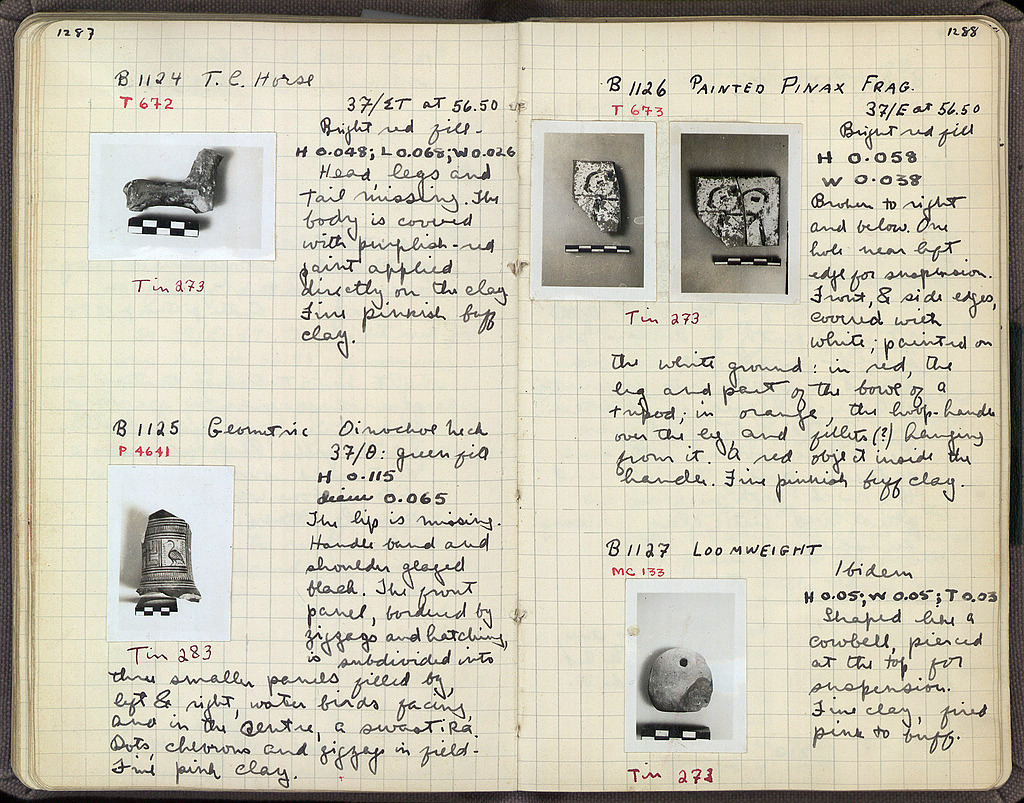 1287
B 1124 T. C. Horse
T 672
37/ΣΤ at 56.50
Bright red fill.
H 0.048; L 0.068; W 0.026
Head legs and
tail missing. The
body is covered
with purplish-red
paint applied
directly on the clay
Fine pinkish buff
clay.
Tin 273
B 1125 Geometric Oinochoe neck
P 4641
37/Θ: green fill
H 0.115
diam 0.065
The lip is missing.
Handle band and
shoulder glazed
black. The front
panel, bordered by
zigzags and hatching,
is subdivided into
three smaller panels filled by,
left & right, water birds facing,
and in the centre, a swastika.
Dots, chevrons and zigzags in field.
Fine pink clay.
Tin 283
1288
B 1126 PAINTED PINAX FRAG.
T 673
37/E at 56.50
Bright red fill
H 0.058
W 0.038
Broken to right
and below. One
hole near left
edge for suspension.
Front, & side edges,
covered with
white; painted on
the white ground: in red, the
leg and part of the bowl of a
tripod; in orange, the hoop-handle
over the leg, and fillets(?) hanging
from it. A red object inside the
handle. Fine pinkish buff clay.
Tin 273
B 1127 LOOMWEIGHT
MC 133
Ibidem
H 0.05; W 0.05; T 0.03
Shaped like a
cowbell, pierced
at the top for
suspension.
Fine clay, fired
pink to buff.
Tin 273